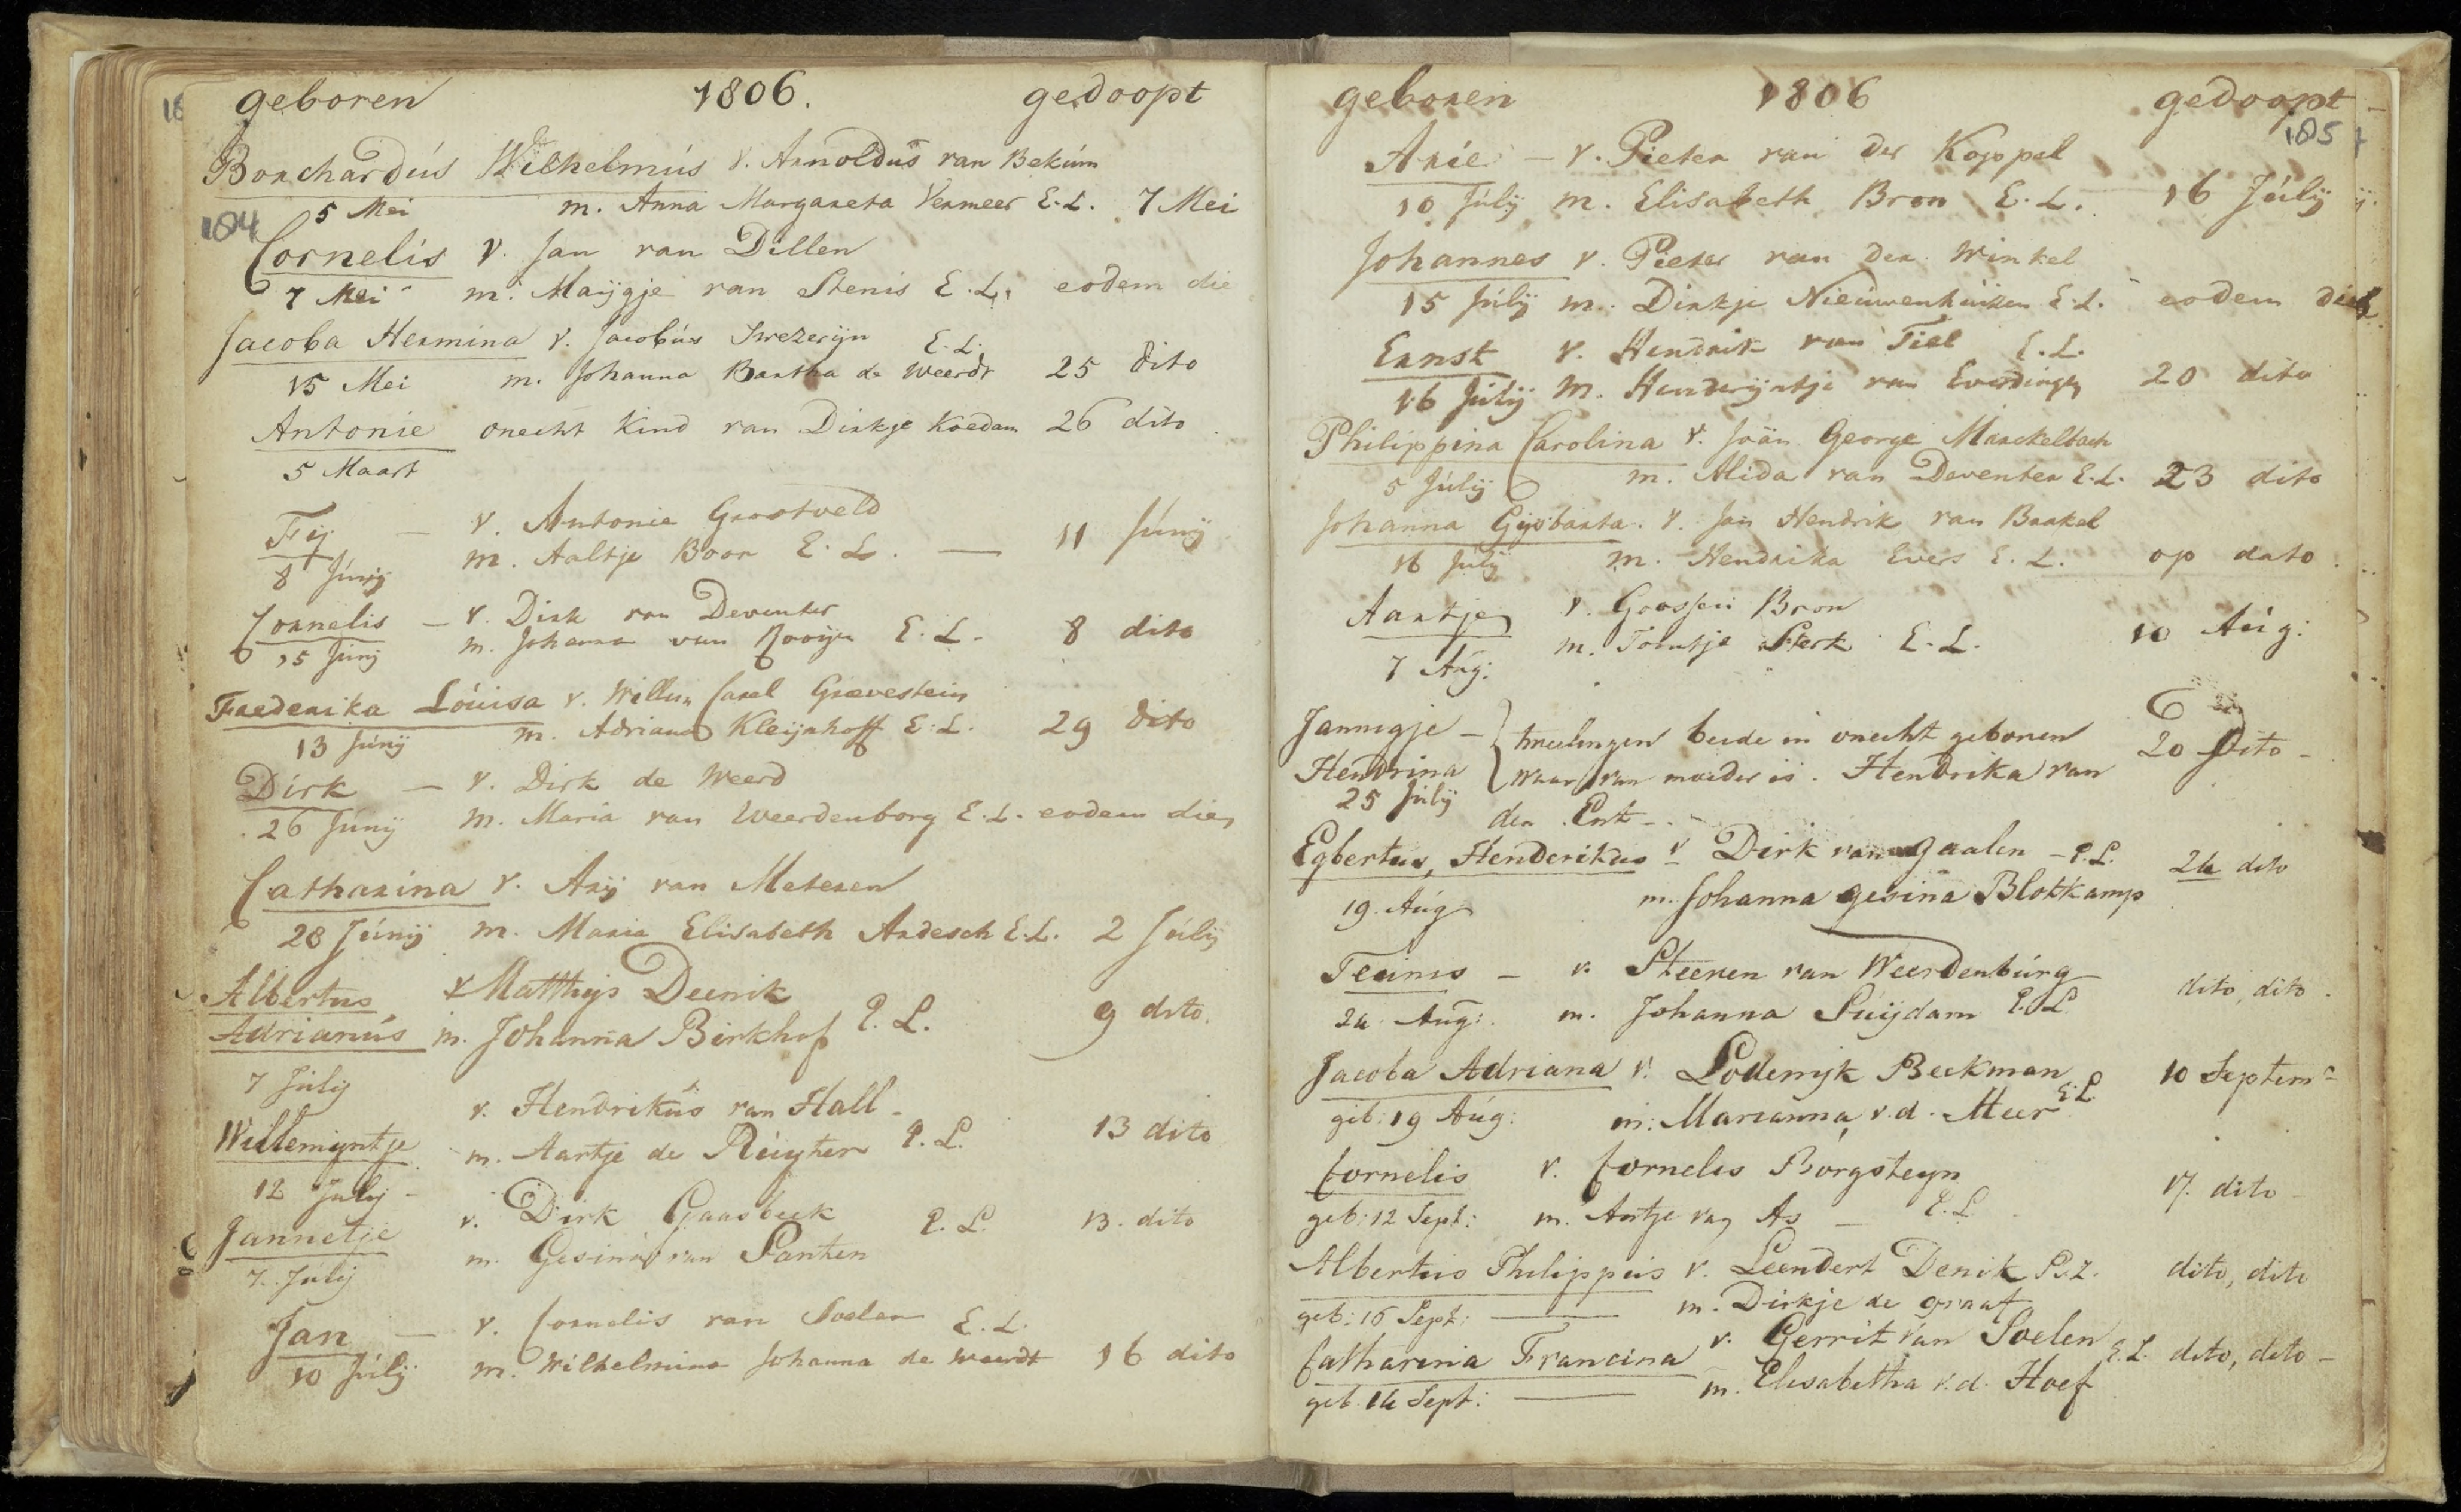 geboren 1806. gedoopt
Borchardús Wilhelmús v. Arnoldús van Bekúm
5 Mei m. Anna Margareta Vermeer E.L. 7 Mei
184
Cornelis v. Jan van Dillen
7 Mei m. Maijgje van Stenis E.L. eodem die
Jacoba Hermina v. Jacobús Swezerijn E.L.
15 Mei m. Johanna Bartha de Weerdt 25 dito
Antonie onecht kind van Dirkje Koedam 26 dito
5 Maart
Fij — v. Antonie Grootveld
8 Júnij m. Aaltje Boor E.L. — 11 Júnij
Cornelis — v. Dirk van Deventer
15 Júnij m. Johanna van Rooijen E.L. 8 dito
Frederika Lóuisa v. Willem Carel Grevestein
13 Júnij m. Adriana Kleijnhoff E.L. 29 dito
Dirk — v. Dirk de Weerd
26 Júnij m. Maria van Weerdenborg E.L. eodem die
Catharina v. Arij van Meteren
28 Júnij m. Maria Elisabeth Ardesch E.L. 2 Júlij
Albertus v Matthijs Deenik
Adrianús m. Johanna Birkhof E.L. 9 dito.
7 Júlij
v. Hendrikús van Hall
Willemijntje m. Aartje de Rúyter E.L. 13 dito
12 July
v. Dirk Gaasbeek E.L. 13. dito
Jannetje m. Gesina van Santen
7. Júlij
Jan — v. Cornelis van Soelen E.L.
10 Júlij m. Wilhelmina Johanna de Weerdt 16 dito
geboren 1806 gedoopt
185
Arie — v. Pieter van der Koppel
10 Júlij m. Elisabeth Bron E.L. 16 Júlij
Johannes v. Pieter van der Winkel
15 Júlij m. Dirkje Nieúwenhúizen E.L. eodem die
Ernst v. Hendrik van Tiel E.L.
16 Júlij m. Henderijntje van Everdingen 20 dito
Philippina Carolina v. Joän George Marckelbach
5 Júlij m. Alida van Deventer E.L. 23 dito
Johanna Gijsbarta. v. Jan Hendrik van Brakel
16 Júlij m. Hendrika Evers E.L. op dato
Aartje v. Goossen Bron
7 Aúg: m. Toontje Sterk E.L. 10 Aúg:
Jannigje — tweelingen beide in onecht geboren 20 dito
Hendrina waar van moeder is. Hendrika van
25 Júlij den Ent
Egbertus, Henderikus v Dirk van Gaalen — E.L. 24 dito
19. Aúg m. Johanna Gesina Blotkamp
Teúnis — v. Steeven van Weerdenbúrg
24 Aúg: m. Johanna Súijdam E.L. dito, dito
Jacoba Adriana v. Lodewijk Beekman 10 Septem
geb: 19 Aúg: m: Marianna v.d. Meer E.L.
Cornelis v. Cornelis Borgsteyn 17. dito
geb: 12 Sept: m. Antje van As — E.L.
Albertus Philippus v. Leendert Denik P.Z. dito, dito
geb: 16 Sept: — m. Dirkje de Graaf
Catharina Francina v. Gerrit van Soelen E.L. dito, dito —
geb. 14 Sept: — m. Elisabetha v.d. Hoef